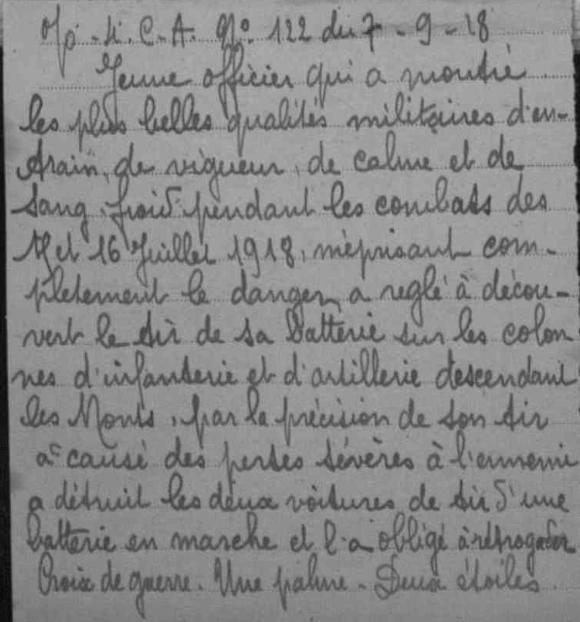 Op. N. C. A. No. 122 du 7-9-18
Jeune officier qui a montré
les plus belles qualités militaires d'en-
train, de vigueur, de calme et de
sang-froid pendant les combats des
et 16 Juillet 1918, méprisant com-
pletement le danger, a reglé à décou-
vert le tir de sa batterie sur les colon
nes d'infanterie et d'artillerie descendant
les Monts, par la précision de son tir
a causé des pertes sévères à l'ennemi
a détruit les deux voitures de tir d'une
batterie en marche et l'a obligé à rétrogader
Croix de guerre. Une palme - Deux étoiles